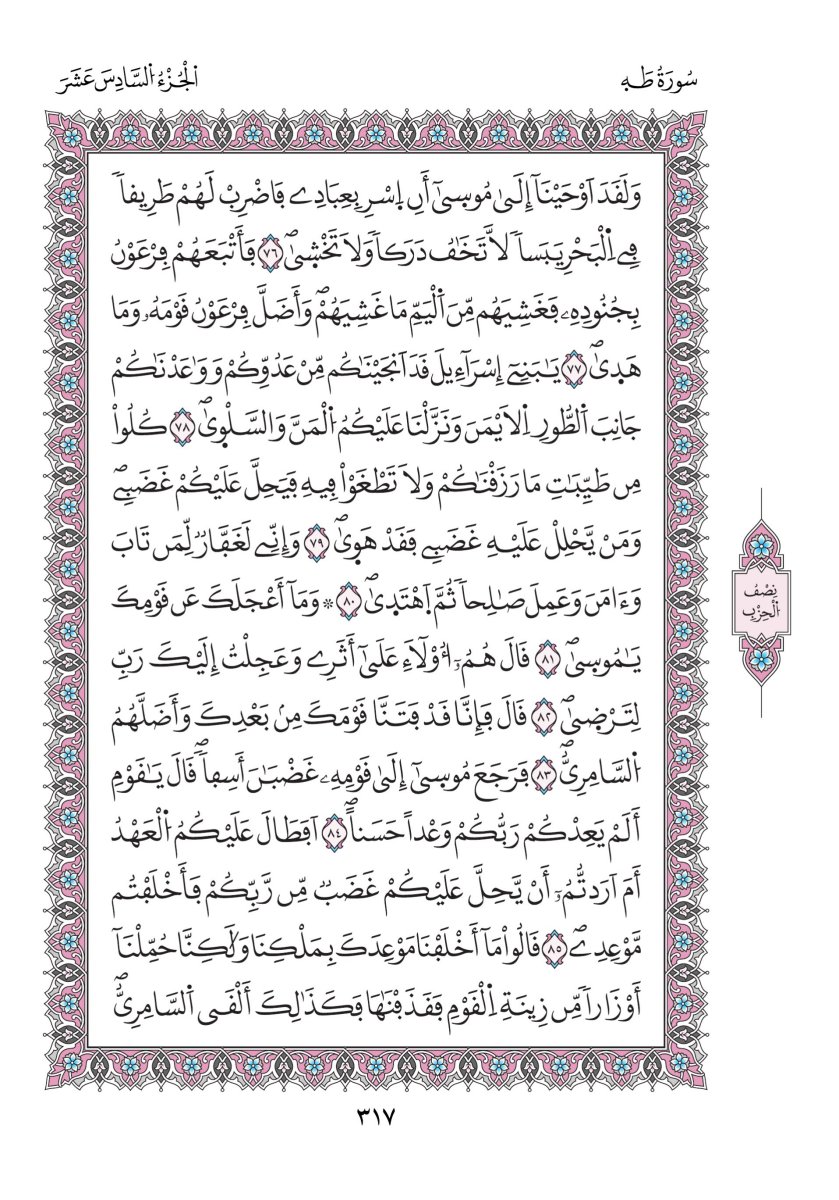 سُورَةُ طَهِ
اَ۬لْجُزْءُ اُ۬لسَّادِسَ عَشَرَ
وَلَقَدَ اَوْحَيْنَآ إِلَىٰ مُوسِىٰٓ أَنِ اِ۪سْرِ بِعِبَادِے فَاضْرِبْ لَهُمْ طَرِيقاٗ
فِے اِ۬لْبَحْرِ يَبَساٗ لَّا تَخَٰفُ دَرَكاٗ وَلَا تَخْش۪ىٰۖ ٧٦ فَأَتْبَعَهُمْ فِرْعَوْنُ
بِجُنُودِهِۦ فَغَشِيَهُم مِّنَ اَ۬لْيَمِّ مَا غَشِيَهُمْۖ وَأَضَلَّ فِرْعَوْنُ قَوْمَهُۥ وَمَا
هَد۪ىٰۖ ٧٧ يَٰبَنِےٓ إِسْرَآءِيلَ قَدَ اَنجَيْنَٰكُم مِّنْ عَدُوِّكُمْ وَوَٰعَدْنَٰكُمْ
جَانِبَ اَ۬لطُّورِ اِ۬لَايْمَنَ وَنَزَّلْنَا عَلَيْكُمُ اُ۬لْمَنَّ وَالسَّلْو۪ىٰۖ ٧٨ كُلُواْ
مِن طَيِّبَٰتِ مَا رَزَقْنَٰكُمْ وَلَا تَطْغَوْاْ فِيهِ فَيَحِلَّ عَلَيْكُمْ غَضَبِےۖ
وَمَنْ يَّحْلِلْ عَلَيْهِ غَضَبِے فَقَدْ هَو۪ىٰۖ ٧٩ وَإِنِّے لَغَفَّارٞ لِّمَن تَابَ
وَءَامَنَ وَعَمِلَ صَٰلِحاٗ ثُمَّ اَ۪هْتَد۪ىٰۖ ٨٠ ۞ وَمَآ أَعْجَلَكَ عَن قَوْمِكَ
يَٰمُوس۪ىٰۖ ٨١ قَالَ هُمُۥٓ أُوْلَآءِ عَلَىٰٓ أَثَرِے وَعَجِلْتُ إِلَيْكَ رَبِّ
لِتَرْض۪ىٰۖ ٨٢ قَالَ فَإِنَّا قَدْ فَتَنَّا قَوْمَكَ مِنۢ بَعْدِكَ وَأَضَلَّهُمُ
اُ۬لسَّامِرِيُّۖ ٨٣ فَرَجَعَ مُوسِىٰٓ إِلَىٰ قَوْمِهِۦ غَضْبَٰنَ أَسِفاٗۖ قَالَ يَٰقَوْمِ
أَلَمْ يَعِدْكُمْ رَبُّكُمْ وَعْداً حَسَناًۖ ٨٤ اَفَطَالَ عَلَيْكُمُ اُ۬لْعَهْدُ
أَمَ اَرَدتُّمُۥٓ أَنْ يَّحِلَّ عَلَيْكُمْ غَضَبٞ مِّن رَّبِّكُمْ فَأَخْلَفْتُم
مَّوْعِدِےۖ ٨٥ قَالُواْ مَآ أَخْلَفْنَا مَوْعِدَكَ بِمَلْكِنَا وَلَٰكِنَّا حُمِّلْنَآ
أَوْزَاراٗ مِّن زِينَةِ اِ۬لْقَوْمِ فَقَذَفْنَٰهَا فَكَذَٰلِكَ أَلْقَى اَ۬لسَّامِرِيُّۖ
نِصْفُ
اُ۬لْحِزْبِ
٣١٧